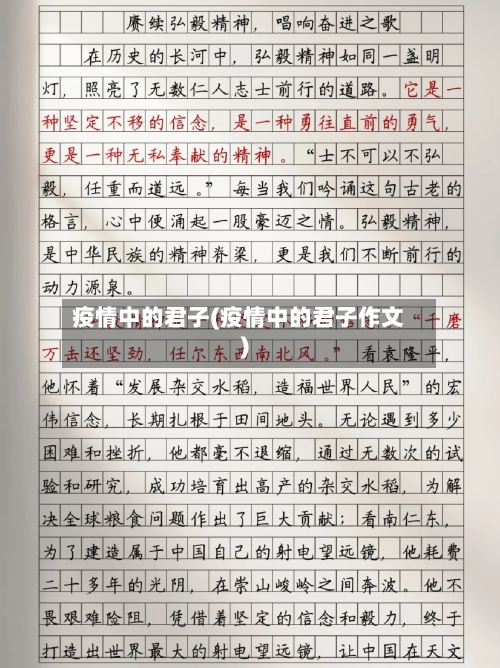 赓续弘毅精神，唱响奋进之歌
在历史的长河中，弘毅精神如同一盏明
灯，照亮了无数仁人志士前行的道路。它是一
种坚定不移的信念，是一种勇往直前的勇气，
更是一种无私奉献的精神。“士不可以不弘
毅，任重而道远。”每当我们吟诵这句古老的
格言，心中便涌起一股豪迈之情。弘毅精神，
是中华民族的精神脊梁，更是我们不断前行的
动力源泉。
疫情中的君子(疫情中的君子作文
)
“千磨
万击还坚劲，任尔东西南北风。”看袁隆平，
他怀着“发展杂交水稻，造福世界人民”的宏
伟信念，长期扎根于田间地头。无论遇到多少
困难和挫折，他都毫不退缩，通过无数次的试
验和研究，成功培育出高产的杂交水稻，为解
决全球粮食问题作出了巨大贡献；看南仁东，
为了建造属于中国自己的射电望远镜，他耗费
二十多年的光阴，在崇山峻岭之间奔波。他不
畏艰难险阻，凭借着坚定的信念和毅力，终于
打造出世界最大的射电望远镜，让中国在天文